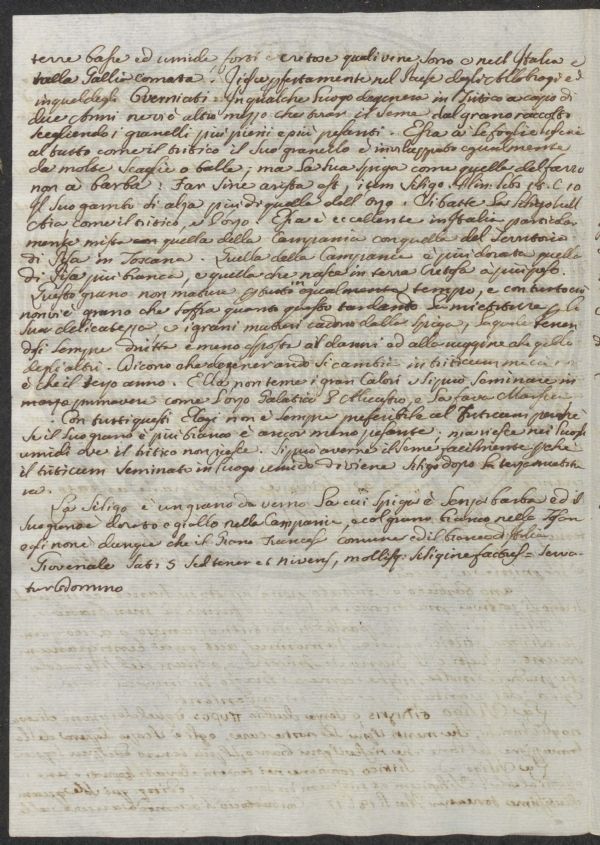 terre basse ed umide forti e cretose quali vine sono e nell Italia e
nella Gallia comata. Riesce perfettamente nel Paese degli Allobrogi e
in quel degli Overniati. In qualche luogo degenera in Tritico a capo di
due anni ne vi è altro mezzo che trar il seme dal grano raccolto
scegliendo i granelli più pieni e più pesanti. Essa à le foglie
al tutto come il tritico il suo granello è inviluppato egualmente
da molte scaglie o balle; ma la sua spiga come quella del farro
non a barba: Far sine arista est, item siligo. Plin. lib. 18. C. 10
Il suo gambo di alza più di quello dell Orzo. Si batte
come il tritico, e l'orzo. Essa è eccellente in Italia particolar
mente mista con quella della Campania con quella del Territorio
di Pisa in Toscana. Quella della Campania è più dorata quella
di Pisa più bianca, e quella che nasce in terra Cretosa à più peso.
Questo grano non matura tutto in egualmente tempo, e con tutto ciò
non vi è grano che soffra quanto questo tardando la mietitura per la
sua delicatezza e i grani maturi cadono dalla spiga, la quale tenen
dosi sempre dritta è meno esposta ai danni ed alla ruggine che quella
degli altri. Dicono che degenerando si cambii in triticum
è che il terzo anno. Ella non teme i gran Calori e si può seminare in
marzo primavera come l'orzo Galatico e la fava
Con tutti questi Elogi non è sempre preferibile al Triticum perche
se il suo grano è più bianco è ancor meno pesante; ma riesce nei luoghi
umidi ove il tritico non riesce. Si può averne il seme facilmente perche
il triticum seminato in luogo umido diviene siligo dopo la terza
ra.
La Siligo è un grano da verno la cui spiga è senza barba ed il
suo grano è dorato e giallo nella Campania, e col grano bianco nella
essi non è dunque che il Grano Francese comune ed il bianco d'Italia
Giovenale Sat. 5 Sed tener et niveus, mollisq. siligine factus = Serva
tur domino